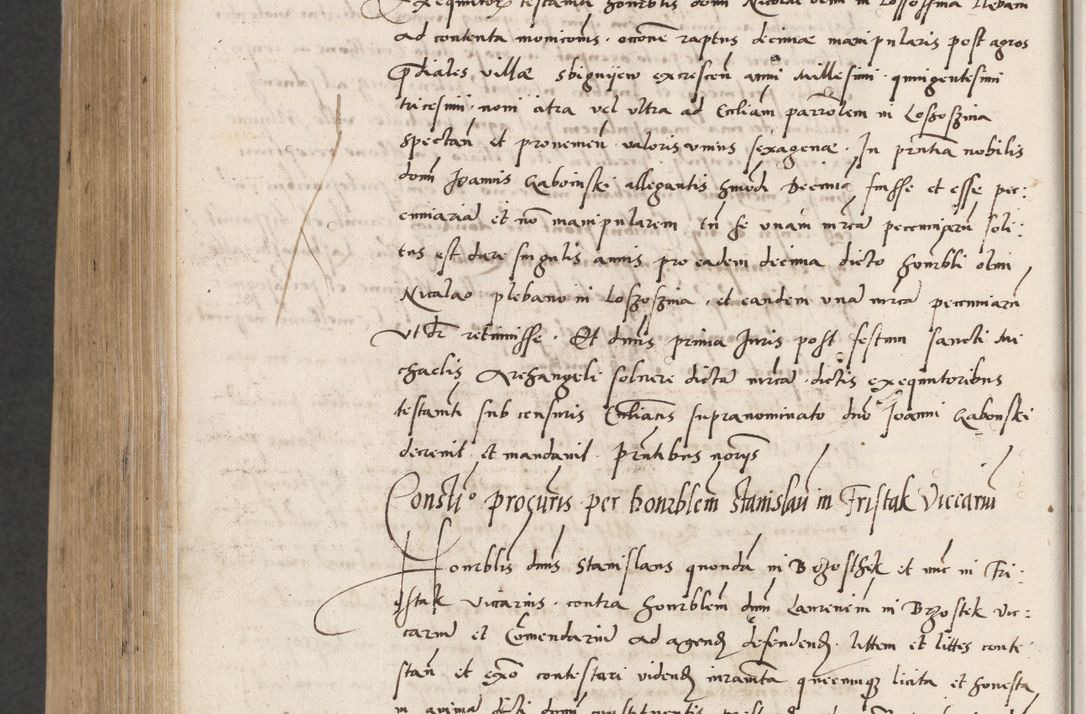 Exequitor testamti honrblis domi Nicolai olim in Lossossina plebani
ad contenta monicionis occone raptus decimae manipularis post agros
pdiales villae sbignijew excrescen anni Millesimi quingentesimi
tricesimi noni citra vel ultra ad Eccliam parrolem in Loszoszina
spectan et provenien valoris unius sexagenae. In prntia nobilis
domi Joannis Gaboinski allegantis hmodi decima fuisse et esse pec:
cuniaria et no manipularem tn se unam mrca pecuniaru soli:
tus est dare singulis annis pro eadem decima dicto honrbli olim
Nicalao plebano in Loszoszina, et eandem una mrca pecuniaru
ut dr retinuisse. Et dnus prima Juris post festum sancti Mi
chaelis Archangeli solvere dicta mrca dictis exequitoribus
testamti sub censuris Eccliacis supranominato dno Joanni Gabonski
decrevit et mandavit. Prntibus noriis
Constio procuris per honrblem Stanislau in Fristak Viccariu
Honrblis dnus Stanislaus quonda in Brzosthek et nunc in Fri:
sstak vicarius contra honrblem dnm Laurenciu in Brzostek vic:
cariu et Comendariu ad agend defendend littem et littes conte
stan et exno contestari vidend iuramta quecumq licita et honesta
in anima dicti domi constituentis